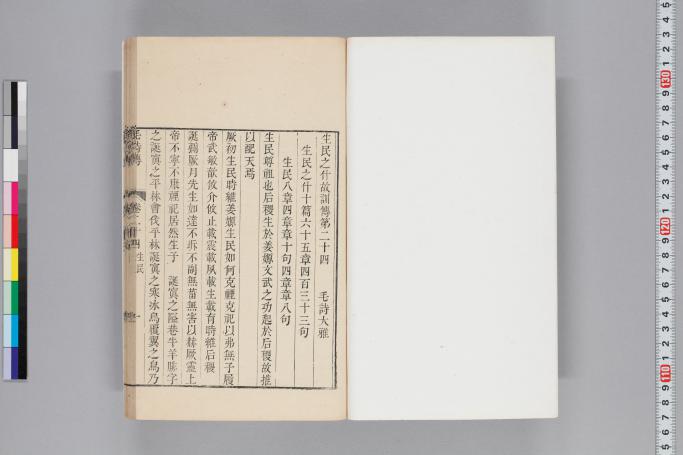 生民之什故訓傳第二十四　毛詩大雅
生民之什十篇六十五章四百三十三句
生民八章四章章十句四章章八句
生民尊祖也后稷生於姜嫄文武之功起於后稷故推
以配天焉
厥初生民時維姜嫄生民如何克禋克祀以弗無子履
帝武敏歆攸介攸止載震載夙載生載育時維后稷
誕彌厥月先生如達不坼不副無菑無害以赫厥靈上
帝不寧不康禋祀居然生子　誕寘之隘巷牛羊腓字
之誕寘之平林會伐平林誕寘之寒冰鳥覆翼之鳥乃
毛詩傳　卷二十四　生民
130
120
110